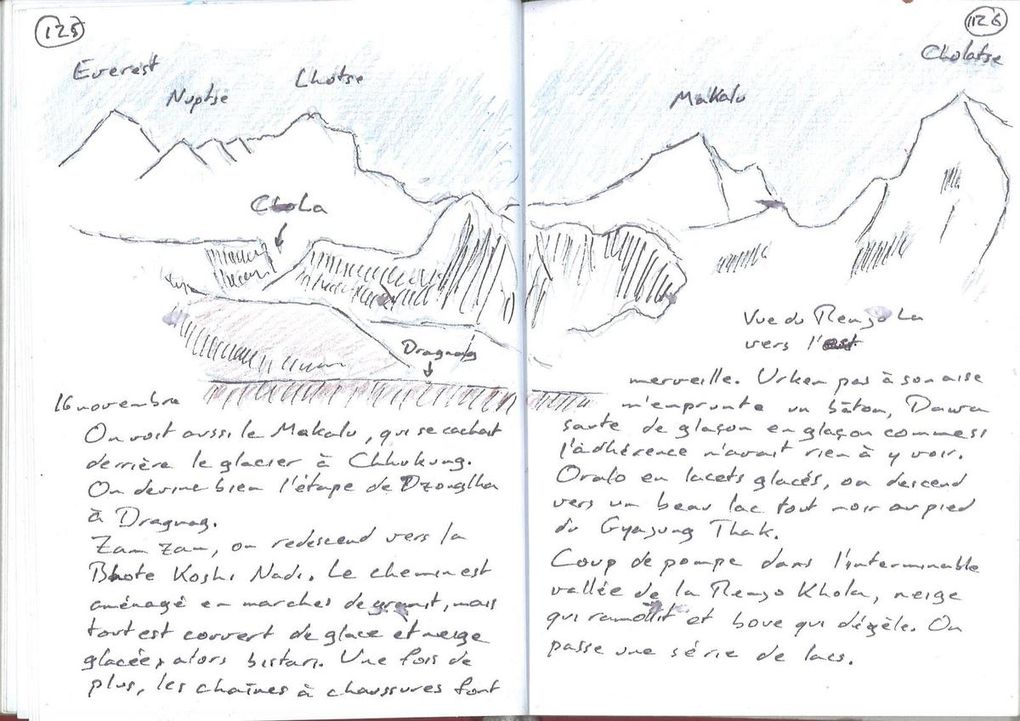 125
Everest
Nuptse
Lhotse
Chola
Dragnag
16 novembre
On voit aussi le Makalu, qui se cachait
derrière le glacier à Chhukung.
On devine bien l'étape de Dzonglha
à Dragnag.
Zam zam, on redescend vers la
Bhote Koshi Nadi. Le chemin est
aménagé en marches de granit, mais
tout est couvert de glace et neige
glacée, alors bistari. Une fois de
plus, les chaînes à chaussures font
126
Cholatse
Makalu
Vue du Renjo La
vers l'est
merveille. Urken pas à son aise
m'emprunte un bâton, Dawa
saute de glaçon en glaçon comme si
l'adhérence n'avait rien à y voir.
Oralo en lacets glacés, on descend
vers un beau lac tout noir au pied
du Gyajung Thak.
Coup de pompe dans l'interminable
vallée de la Renjo Khola, neige
qui ramollit et boue qui dégèle. On
passe une série de lacs.